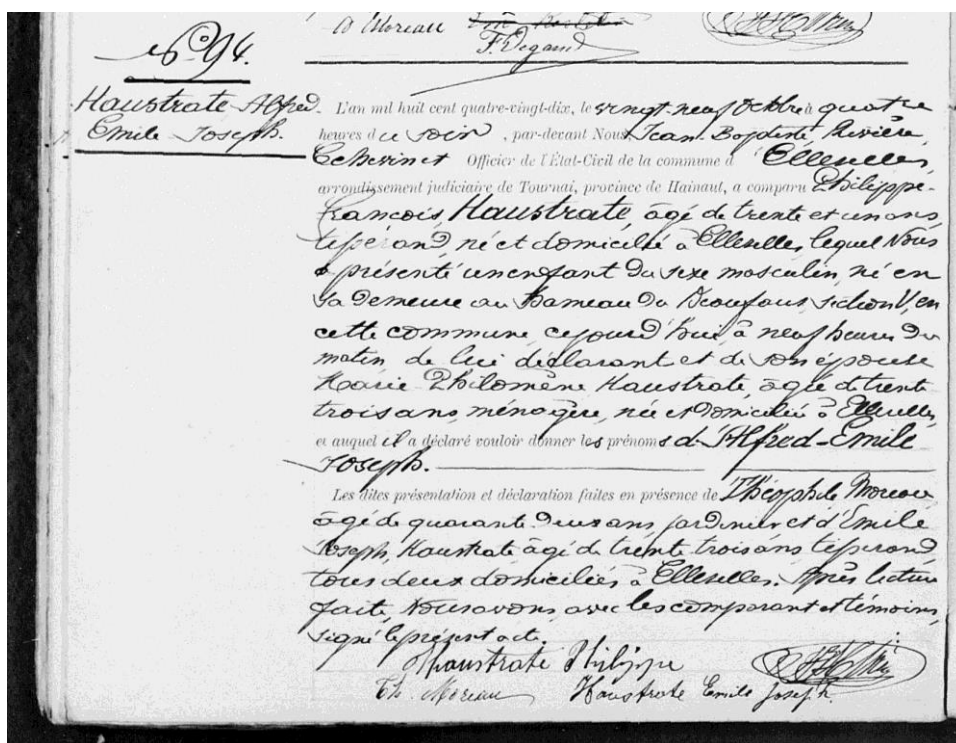 A Moreau
F. Degand
N° 94.
Haustrate Alfred
Emile Joseph.
L'an mil huit cent quatre-vingt-dix, le vingt-neuf Octobre à quatre
heures du soir, par-devant Nous Jean Baptiste Rivière
Echevin et Officier de l'État-Civil de la commune d'Ellezelles,
arrondissement judiciaire de Tournai, province de Hainaut, a comparu Philippe-
François Haustrate âgé de trente et un ans,
tisserand, né et domicilié à Ellezelles, lequel Nous
a présenté un enfant du sexe masculin, né en
sa demeure au hameau du section V, en
cette commune, cejourd'hui à neuf heures du
matin de lui déclarant et de son épouse
Marie Philomène Haustrate, âgée de trente
trois ans, ménagère, née et domiciliée à Ellezelles,
et auquel il a déclaré vouloir donner les prénoms d'Alfred-Emile
Joseph.
Les dites présentation et déclaration faites en présence de Théophile Moreau
âgé de quarante deux ans jardinier et d'Emile
Joseph Haustrate âgé de trente trois ans tisserand,
tous deux domiciliés à Ellezelles. Après lecture
faite, Nous avons, avec les comparant et témoins,
signé le présent acte.
Haustrate Philippe
Th. Moreau Haustrate Emile Joseph.